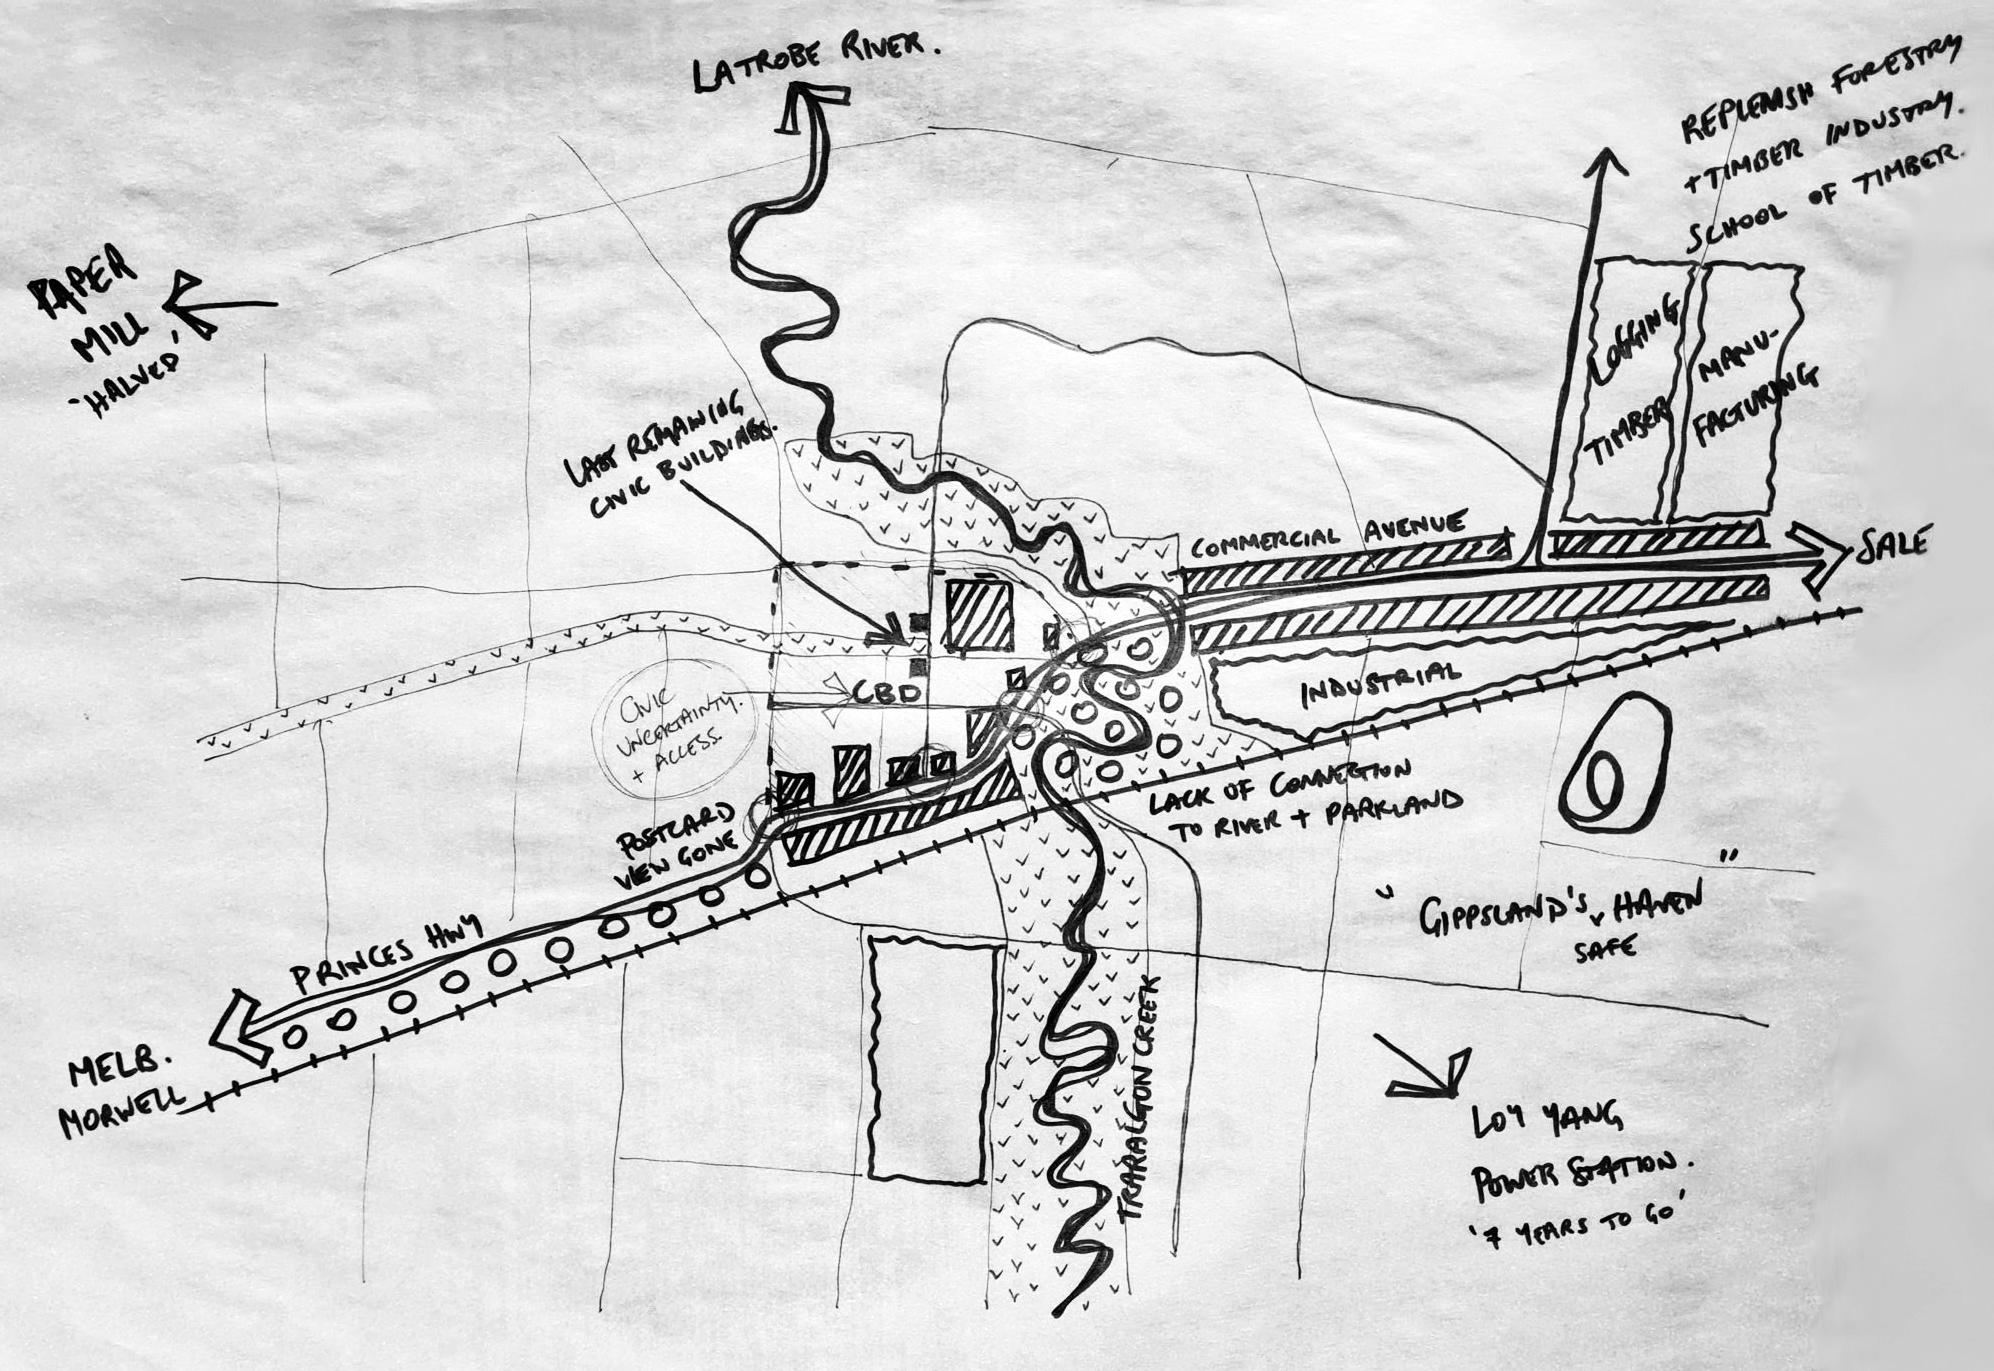 LATROBE RIVER.
REPLENISH FORESTRY
+ TIMBER INDUSTRY.
SCHOOL OF TIMBER.
PAPER
MILL
'HALVED'
LOGGING
TIMBER
MANU-
FACTURING
LAST REMAINING
CIVIC BUILDINGS.
COMMERCIAL AVENUE
SALE
CBD
CIVIC
UNCERTAINTY.
+ ACCESS.
INDUSTRIAL
POSTCARD
VIEW GONE
LACK OF CONNECTION
TO RIVER + PARKLAND
PRINCES HWY
"GIPPSLAND'S HAVEN"
SAFE
MELB.
MORWELL
TRARALGON CREEK
LOY YANG
POWER STATION.
'7 YEARS TO GO'